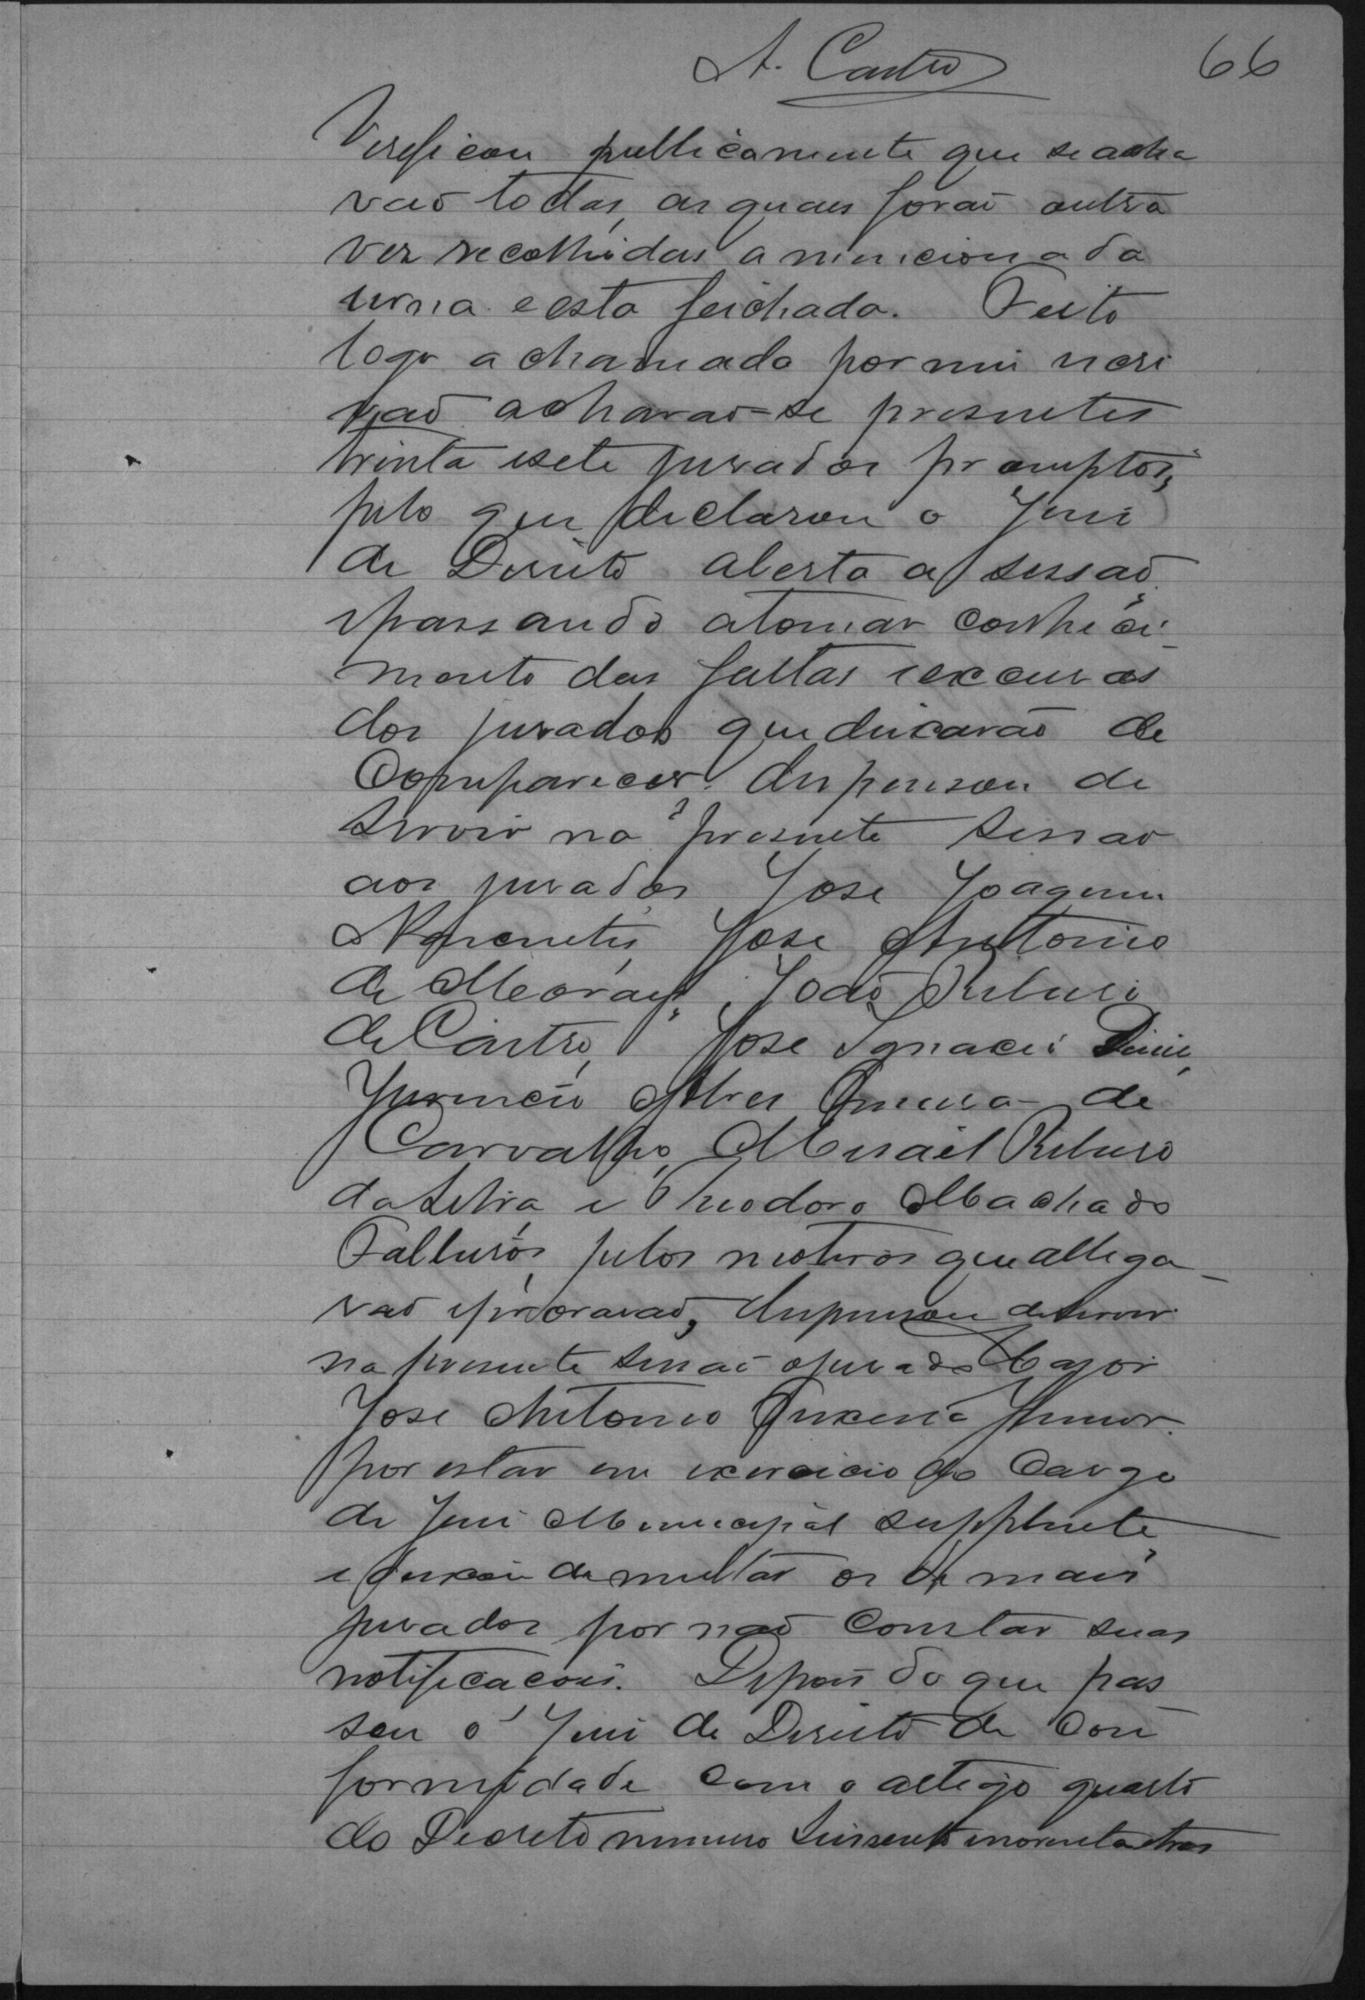 A. Castro 66
Verificou publicamente que se acha
vaõ todas, as quaes foraõ outra
vez recolhidas a mencionada
urna e esta feichada. Feito
logo a chamada por mim escri
vaõ acharaõ-se presentes
trinta e sete jurados promptos,
pelo que declarou o Juiz
de Direito aberta a sessaõ,
e passando a tomar conheci-
mento das faltas e excusas
dos jurados que deicharaõ de
Comparecer, dispensou de
servir na presente sessaõ
aos jurados José Joaquim
José Antonio
de Moraes, Joaõ Ribeiro
de Castro, José Ignacio Diniz,
Juvencio Alves de
Carvalho, Misael Ribeiro
da Silva e Theodoro Machado
pelos motivos que allega-
raõ e provaraõ, dispensou de servir
na presente sessaõ o jurado Major
José Antonio Junior
por estar em exercicio do Cargo
de Juiz Municipal supplente,
e deixou de multar os de mais
jurados por naõ constar suas
notificacões. Depois do que pas
sou o Juiz de Direito de con
formidade com o artigo quarto
do Decreto numero seissentos e noventa e tres